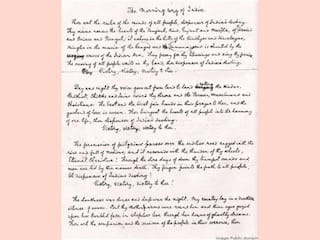 The Morning Song of India
Thou art the ruler of the minds of all people, dispenser of India's destiny.
Thy name rouses the hearts of the Punjab, Sind, Gujrat and Maratha, of Dravid
and Orissa and Bengal; it echoes in the hills of the Vindhyas and Himalayas,
mingles in the music of the Jamuna and is chanted by the
waves of the Indian Sea. They pray for thy blessings and sing thy praise,
the saving of all people waits in thy hand, thou dispenser of India's destiny.
Victory, Victory, Victory to thee.
Day and night thy voice goes out from land to land calling the Hindus,
Buddhists, Sikhs and Jains round thy throne and the Parsees, Mussalmans and
Christians. The East and the West join hands in their prayer to thee, and the
garland of love is woven. Thou bringest the hearts of all people into the harmony
of one life, thou dispenser of India's destiny.
Victory, Victory, Victory to thee.
The procession of pilgrims passes over the endless road rugged with the
rise and fall of nations; and it resounds with the thunder of thy wheels,
Eternal Charioteer! Through the dire days of doom thy trumpet sounds and
men are led by thee across death. Thy finger points the path to all people,
Oh dispenser of India's destiny!
Victory, Victory, Victory to thee!
The darkness was dense and deep was the night. My country lay in a
silence of swoon. But thy mother's arms were round her and thine eyes gazed
upon her troubled face in sleepless love through her hours of ghastly dreams.
Thou art the companion and the saviour of the people in their sorrows, thou
Image: Public domain